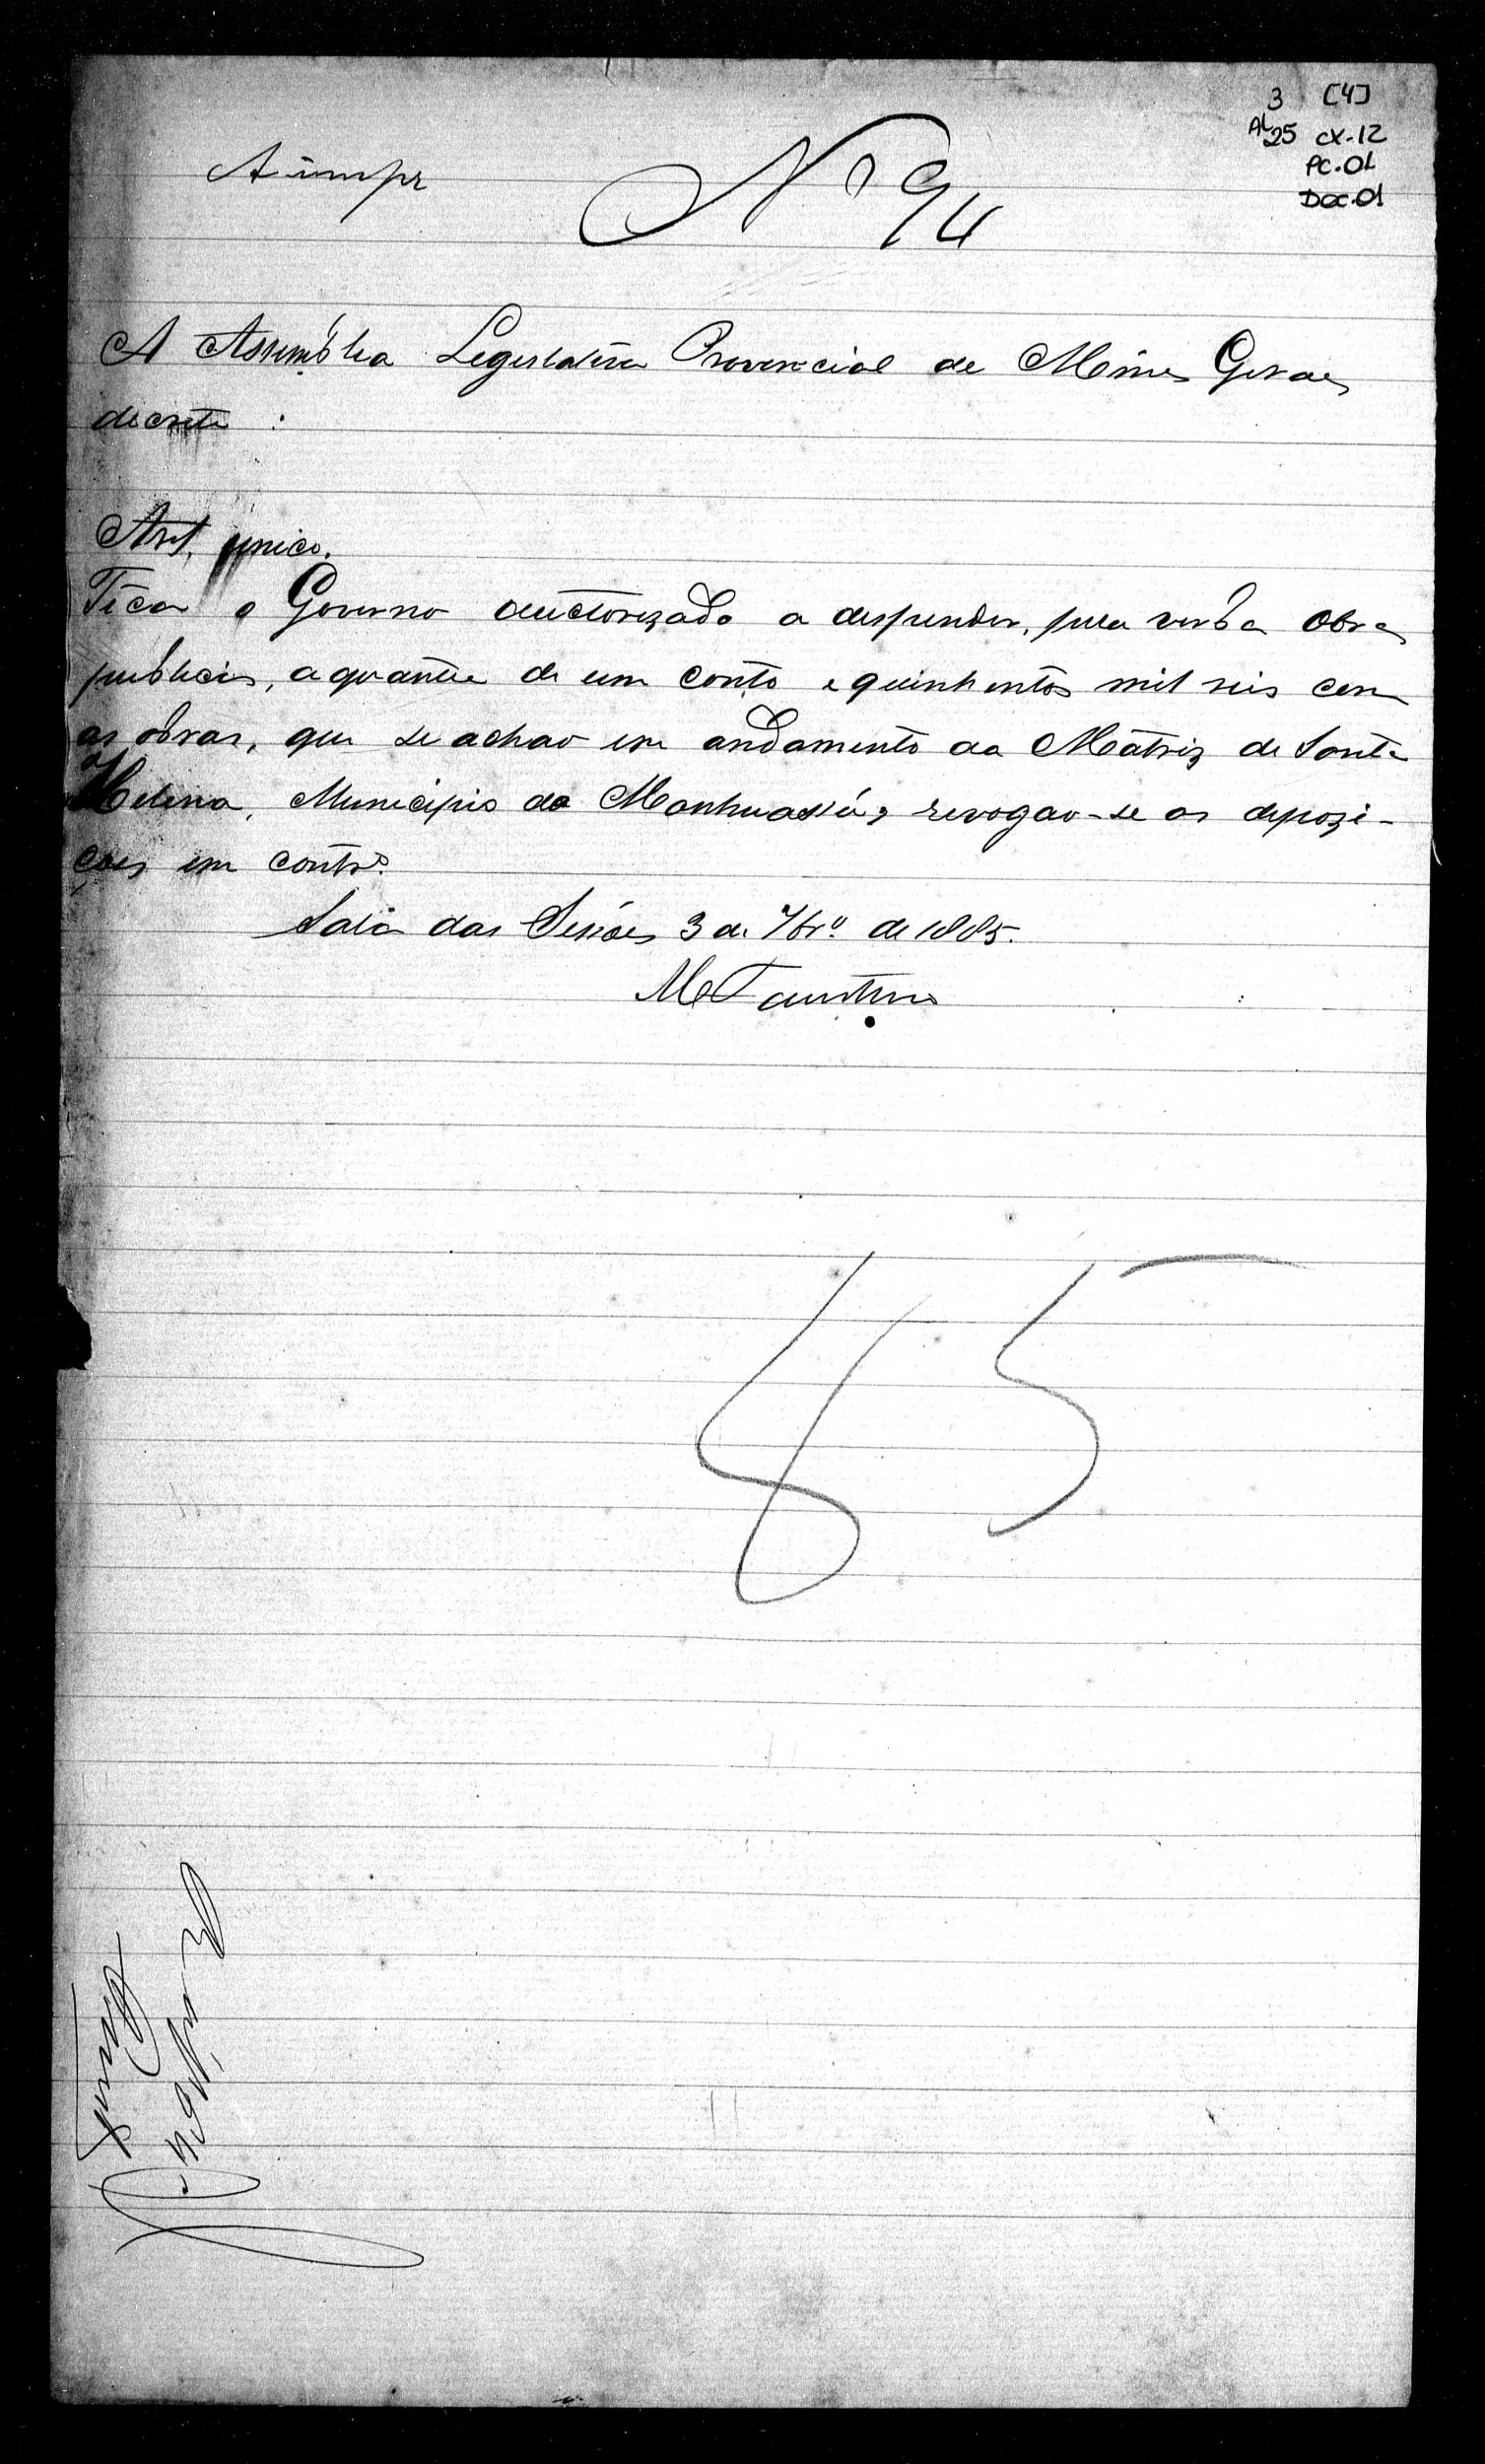 3 [4]
AL 25 CX-12
PC.01
DOC.01
A impr
Nº 94
A Assembléa Legislativa Provincial de Minas Geraes
decreta :
Art. unico.
Fica o Governo auctorizado a despender, pela verba obras
publicas, a quantia de um conto e quinhentos mil reis com
as obras, que se achao em andamento da Matriz de Santa
Helena, Municipio do Manhuassú, revogao-se as depozi-
ções em contrº.
Sala das Sessões 3 de 7brº de 1885.
M Faustino
85